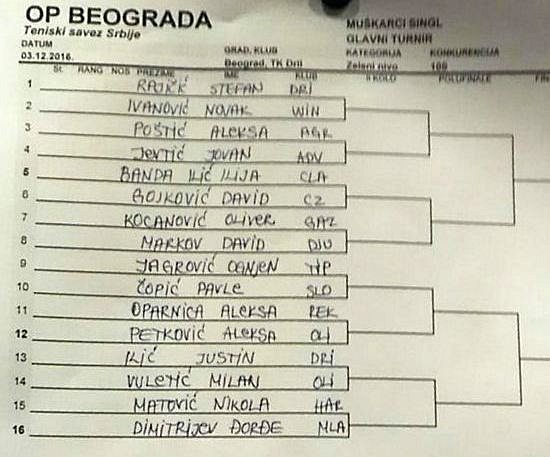 OP BEOGRADA
MUŠKARCI SINGL
Teniski savez Srbije
GLAVNI TURNIR
DATUM GRAD, KLUB KATEGORIJA KONKURENCIJA
03.12.2016. Beograd, TK Dri Zeleni nivo
St. RANG NOS PREZIME IME KLUB II KOLO POLUFINALE
1 STEFAN DRI
2 IVANOVIĆ NOVAK WIN
3 POŠTIĆ ALEKSA AGR
4 JEVTIĆ JOVAN ADV
5 BANDA ILIĆ ILIJA CLA
6 BOJKOVIĆ DAVID CZ
7 KOCANOVIĆ OLIVER GAZ
8 MARKOV DAVID DJU
9 JAGROVIĆ OGNJEN TIP
10 ČOPIĆ PAVLE SLO
11 OPARNICA ALEKSA REK
12 PETKOVIĆ ALEKSA OLI
13 ILIĆ JUSTIN DRI
14 VULETIĆ MILAN OLI
15 MATOVIĆ NIKOLA HAR
16 DIMITRIJEV ĐORĐE MLA